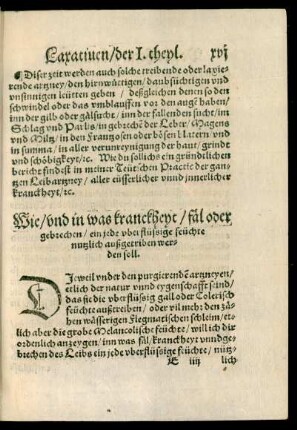 Laxatiuen / der I. theyl. xvj
¶ Diser zeit werden auch solche treibende oder laxie-
rende artzney / den hirnwüttigen / daubsüchtigen vnd
vnsinnigen leütten geben / deßgleichen denen so den
schwindel oder das vmblauffen vor den augẽ haben /
inn der gilb oder gälsucht / inn der fallenden sucht / im
Schlag vnd Parlis / in gebrechẽ der Leber / Magens
vnd Miltz / in den Frantzosen oder bösen blatern / vnd
in summa / in aller verunreynigung der haut / grindt
vnd schöbigkeyt / ꝛc. Wie du sollichs ein gründtlichen
bericht findest in meiner Teütschen Practic der gan-
tzen Leibartzney / aller eüsserlicher vnnd jnnerlicher
kranckheyt / ꝛc.
Wie / vnd in was kranckheyt / fäl oder
gebrechen / ein jede vberflüssige feüchte
nutzlich außgetriben wer-
den soll.
DJeweil vnder den purgierendẽ artzneyen /
etlich der natur vnnd eygenschafft seind /
das sie die vberflüssig gall oder Colerisch
feüchte außtreiben / oder vil mehr den zä-
hen wässerigen Flegmatischen schleim / et-
lich aber die grobe Melancolische feüchte / will ich dir
ordenlich anzeygen / inn was fäl / kranckheyt vnnd ge-
brechen des Leibs ein jede vberflüssige feüchte / nütz-
E iiij lich